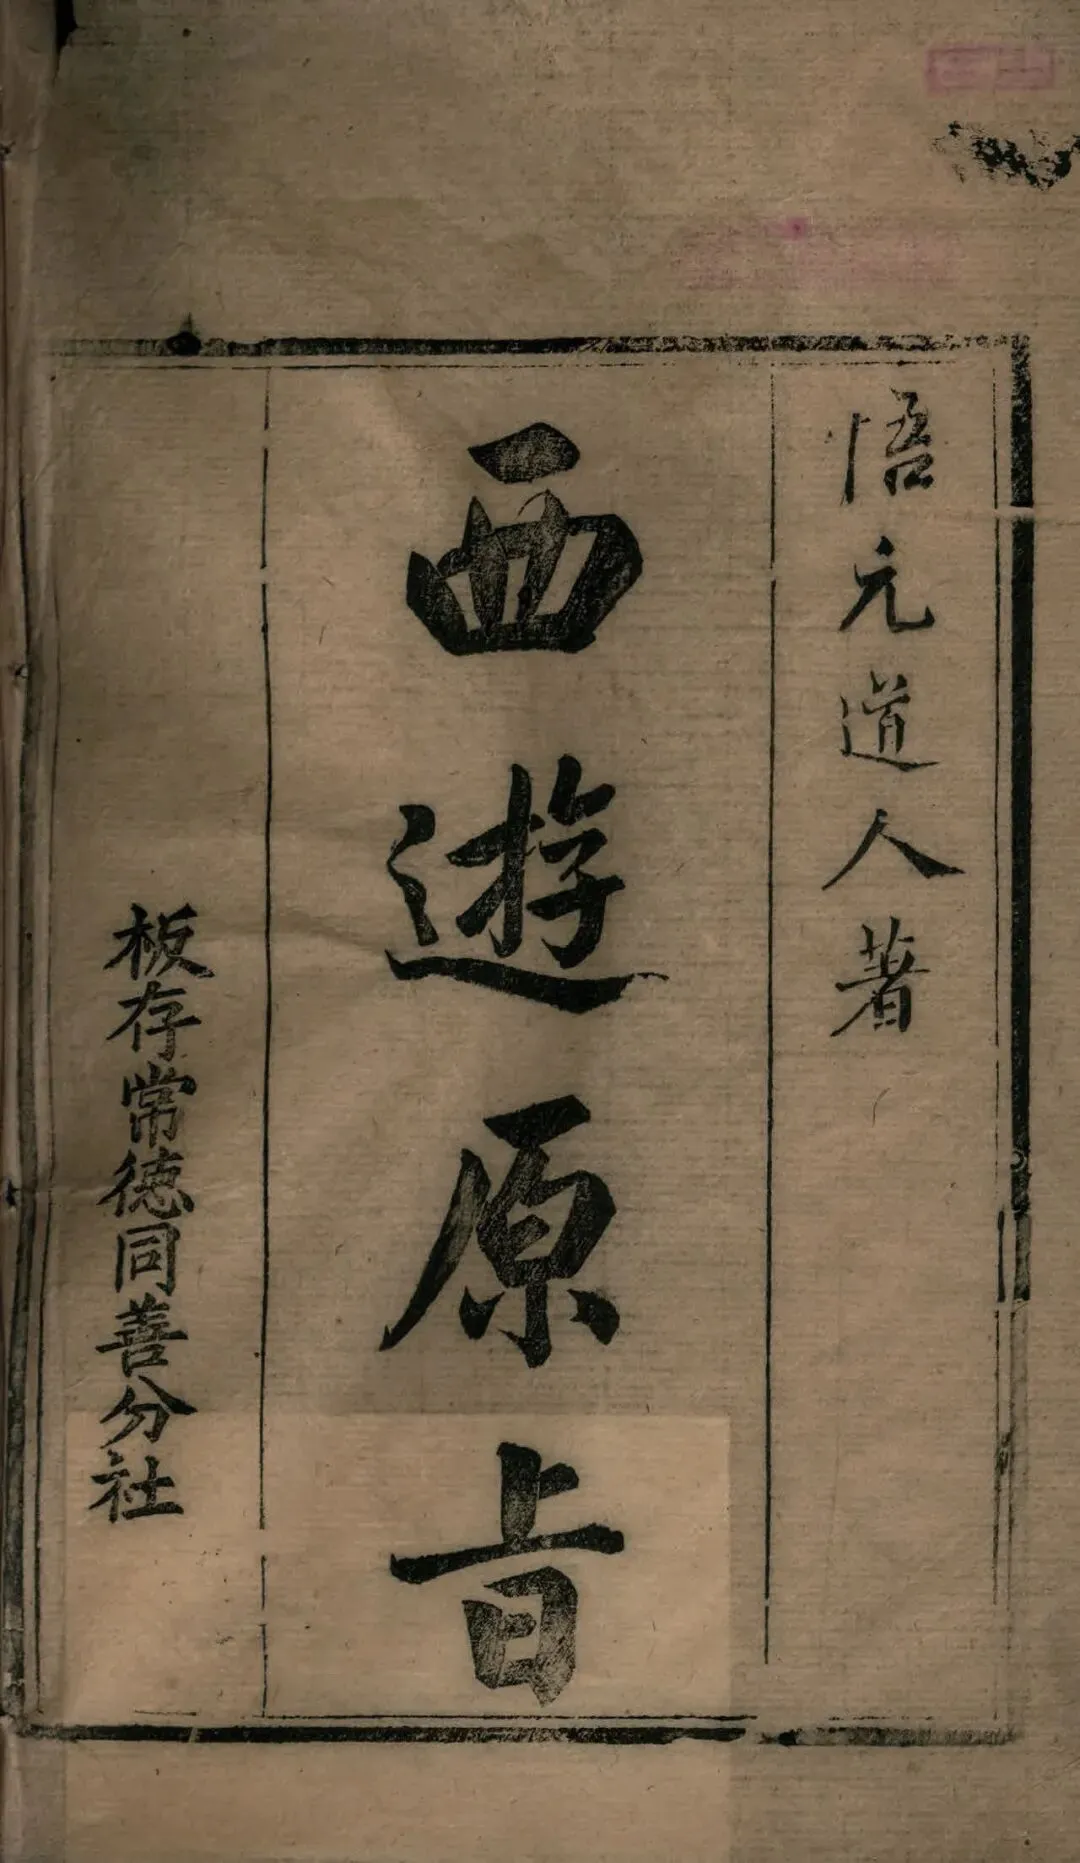 悟元道人著
西遊原旨
板存常德同善分社